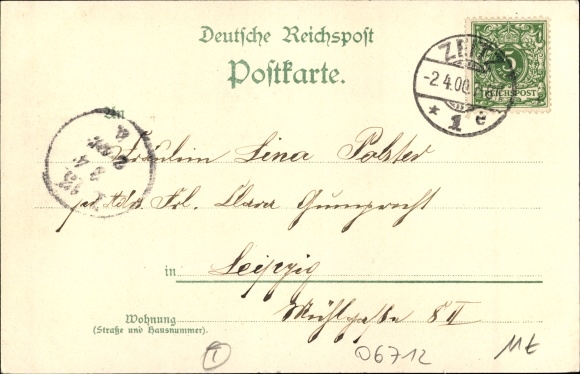 Deutsche Reichspost
Postkarte.
ZEITZ
-2.4.00
* 1 c
5
REICHSPOST
An
Fräulein Lina Polster
pr. Adr. Frl. Clara Gumprecht
in Leipzig
Wohnung
(Straße und Hausnummer).
Mühlgasse 8 II
1
06712